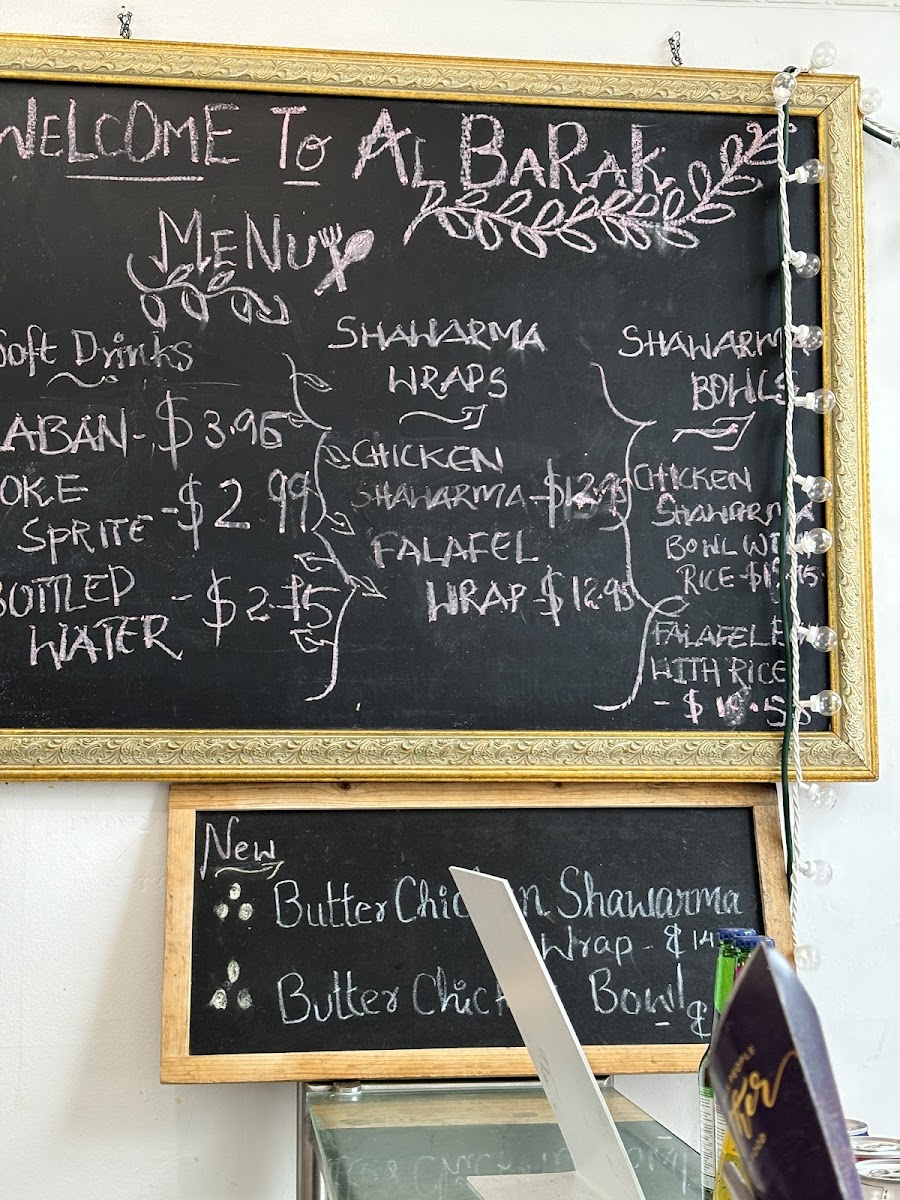 WELCOME To AL BARAK
MENU
Soft Drinks
ABAN - $3.95
OKE
SPRITE - $2.99
BOTTLED
WATER - $2.75
SHAWARMA
WRAPS
CHICKEN
SHAWARMA - $12.95
FALAFEL
WRAP - $12.95
SHAWARMA
BOWLS
CHICKEN
SHAWARMA
BOWL WITH
RICE -
FALAFEL
WITH RICE
New
Butter Chicken Shawarma
Wrap - $14
Butter Chicken Bowl
PEOPLE